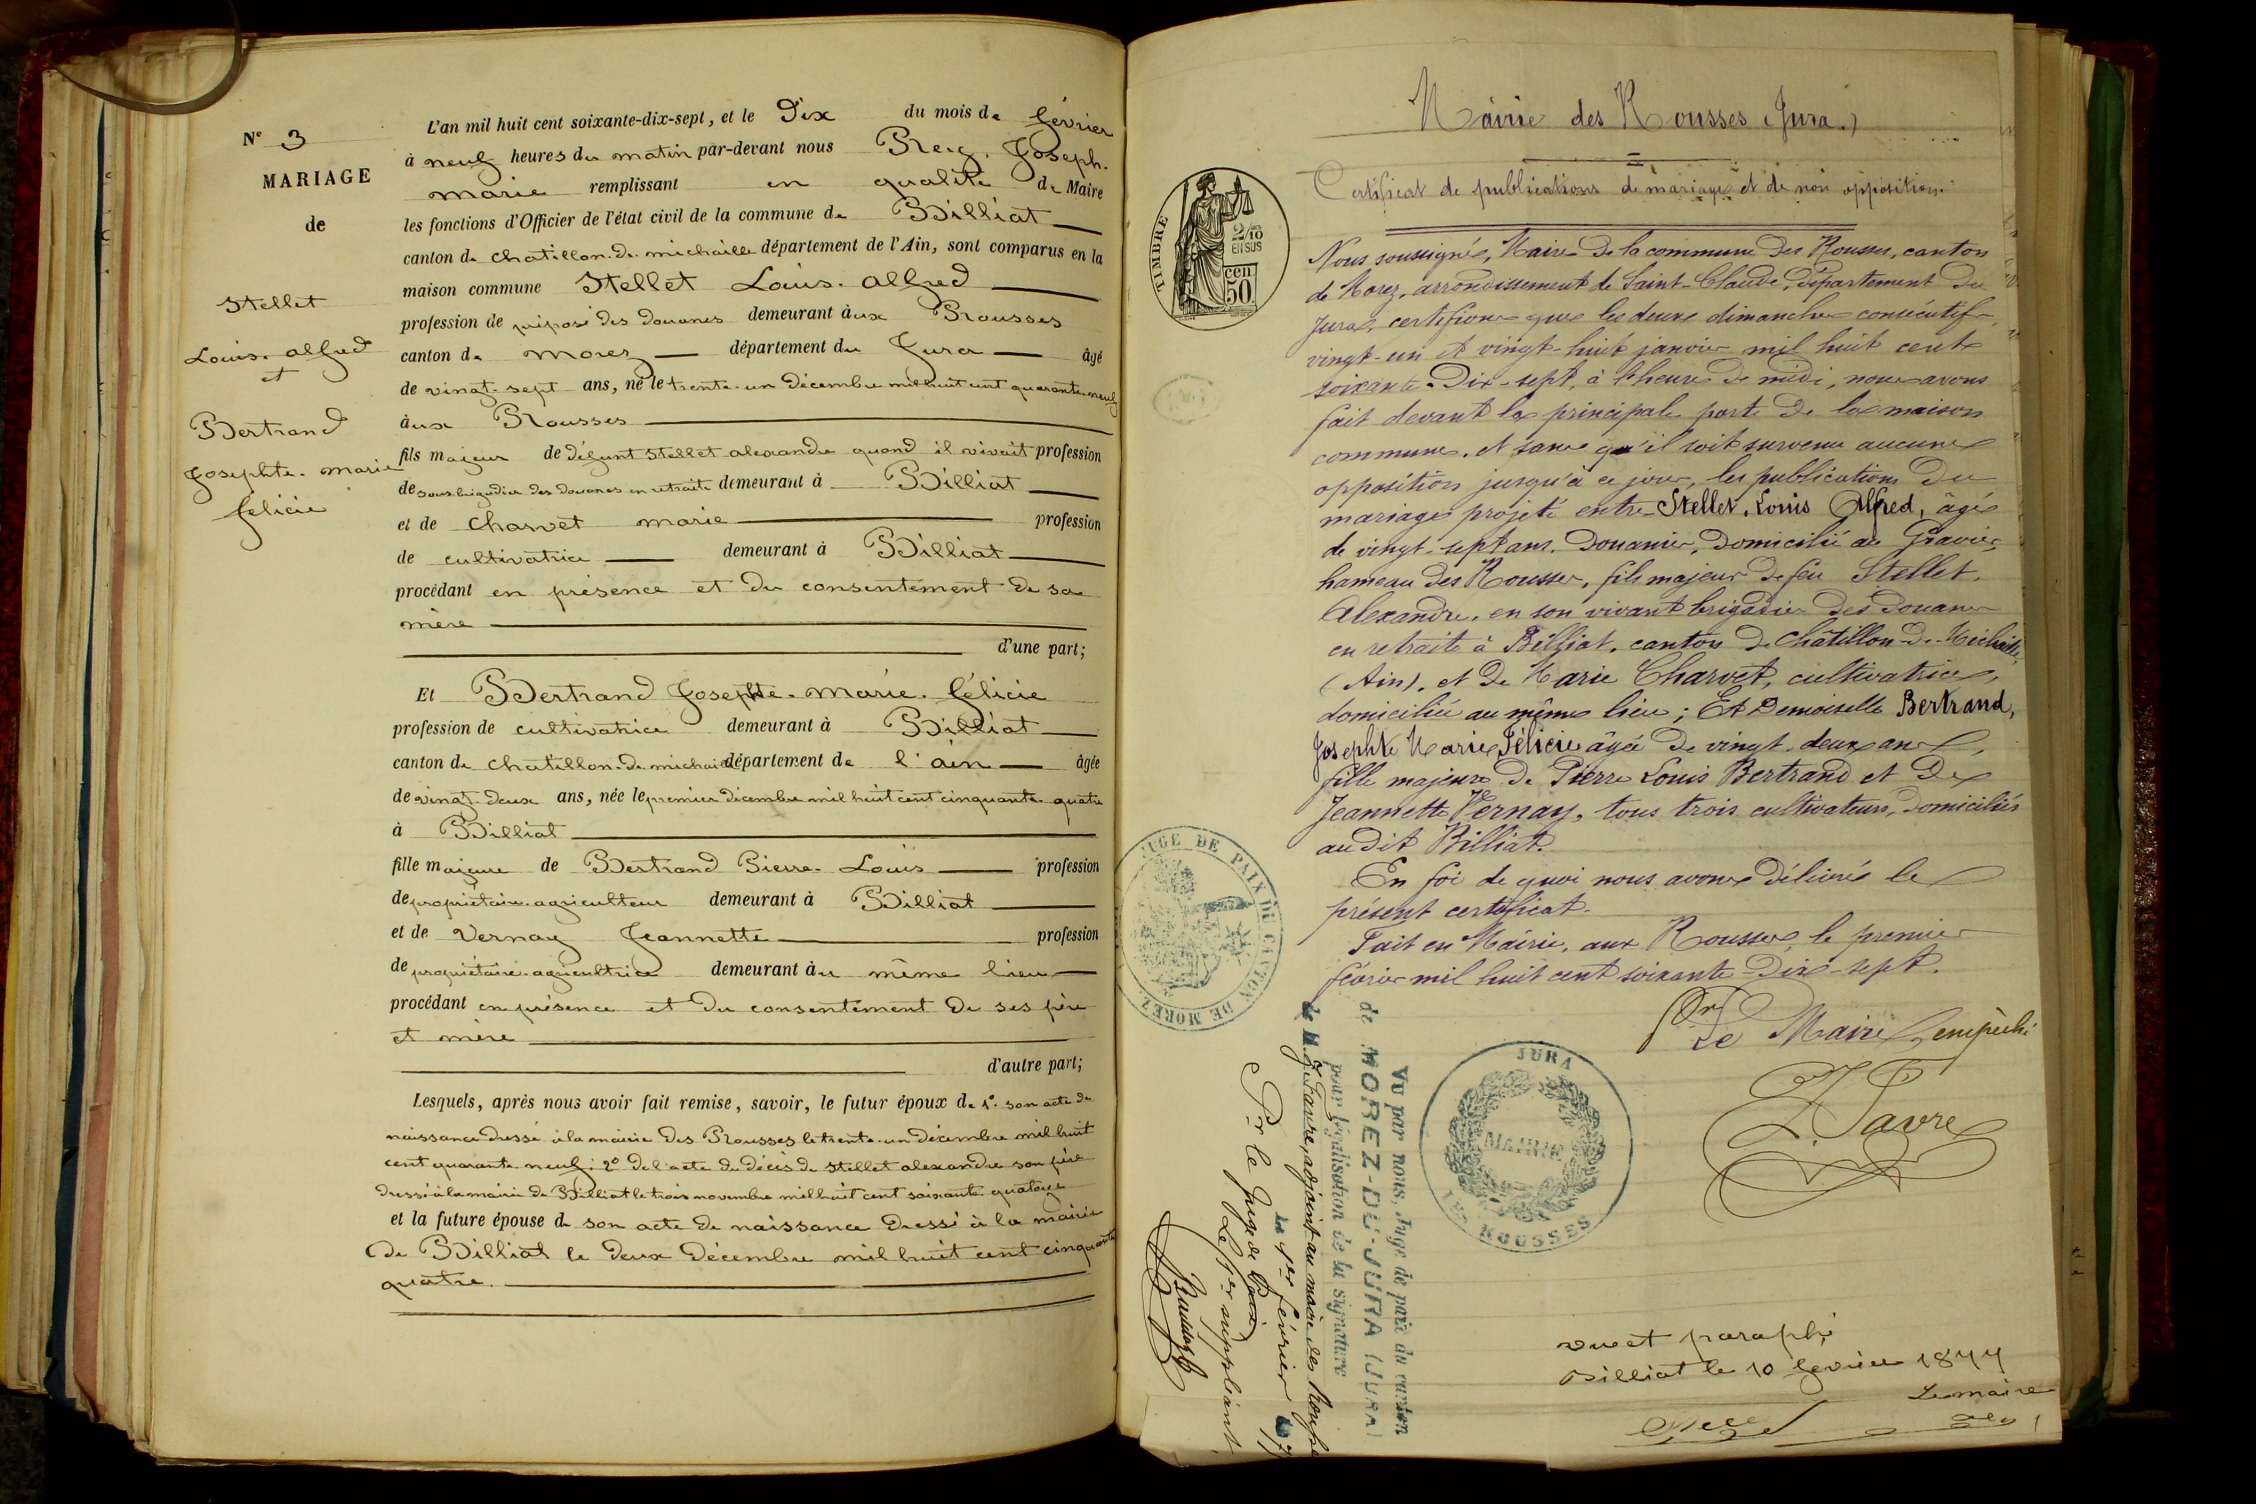 N° 3
MARIAGE
de
Stellet
Louis. alfred
et
Bertrand
Josephte. marie
felicie
L'an mil huit cent soixante-dix-sept, et le Dix du mois de février
à neuf heures du matin par-devant nous Rey. Joseph.
marie remplissant en qualité de Maire
les fonctions d'Officier de l'état civil de la commune de Billiat
canton de chatillon. de. michaille département de l'Ain, sont comparus en la
maison commune Stellet Louis. alfred
profession de préposé des douanes demeurant àux Rousses
canton de morez département du Jura âgé
de vingt. sept ans, né le trente. un Décembre mil huit cent quarante. neuf
àux Rousses
fils majeur de défunt Stellet alexandre quand il vivait profession
de sous brigadier des douanes en retraite demeurant à Billiat
et de Charvet marie profession
de cultivatrice demeurant à Billiat
procédant en présence et du consentement de sa
mère
d'une part;
Et Bertrand Josephte. marie. félicie
profession de cultivatrice demeurant à Billiat
canton de chatillon. de michaille département de l'ain âgée
de vingt. deux ans, née le premier décembre mil huit cent cinquante. quatre
à Billiat
fille majeure de Bertrand Pierre. Louis profession
de propriétaire. agriculteur demeurant à Billiat
et de Vernay Jeannette profession
de propriétaire. agricultrice demeurant àu même lieu
procédant en présence et du consentement de ses père
et mère
d'autre part;
Lesquels, après nous avoir fait remise, savoir, le futur époux de 1°. son acte de
naissance dressé à la mairie des Rousses le trente. un décembre mil huit
cent quarante neuf; 2° de l'acte de décès de Stellet alexandre son père
dressé à la mairie de Billiat le trois novembre mil huit cent soixante quatorze
et la future épouse de son acte de naissance dressé à la mairie
de Billiat le deux décembre mil huit cent cinquante
quatre.
Mairie des Rousses (Jura.)
Certificat de publications de mariage et de non opposition.
TIMBRE
2/10
EN SUS
cen
50
Nous soussigné, Maire de la commune des Rousses, canton
de Morez, arrondissement de Saint-Claude, département du
Jura, certifions que les deux dimanches consécutifs
vingt-un et vingt-huit janvier mil huit cent
soixante-Dix-sept, à l'heure de midi, nous avons
fait devant la principale porte de la maison
commune, et sans qu'il soit survenu aucune
opposition jusqu'à ce jour, les publications du
mariage projeté entre Stellet, Louis Alfred, âgé
de vingt-sept ans. Douanier, domicilié au Gravier,
hameau des Rousses, fils majeur de feu Stellet,
Alexandre, en son vivant brigadier des Douanes
en retraite à Billiat, canton de Châtillon-de-Michaille,
(Ain), et de Marie Charvet, cultivatrice,
domiciliée au même lieu; Et Demoiselle Bertrand,
Josephte Marie Félicie âgée de vingt-deux ans,
fille majeure de Pierre Louis Bertrand et de
Jeannette Vernay, tous trois cultivateurs, domiciliés
audit Billiat.
En foi de quoi nous avons délivré le
présent certificat.
Fait en Mairie, aux Rousses, le premier
février mil huit cent soixante-Dix-sept.
Pr Le Maire empêché
Favre
JUGE DE PAIX DU CANTON DE MOREZ
JURA
MAIRIE
LES ROUSSES
Vu par nous, Juge de paix du canton
de MOREZ-DU-JURA (JURA)
pour légalisation de la signature
de M. Favre, adjoint au maire des Rousses
Le 1er février 187
Pr le Juge de Paix
Le 1er suppléant
vu et paraphé
Billiat le 10 fevrier 1877
Le maire
Rey